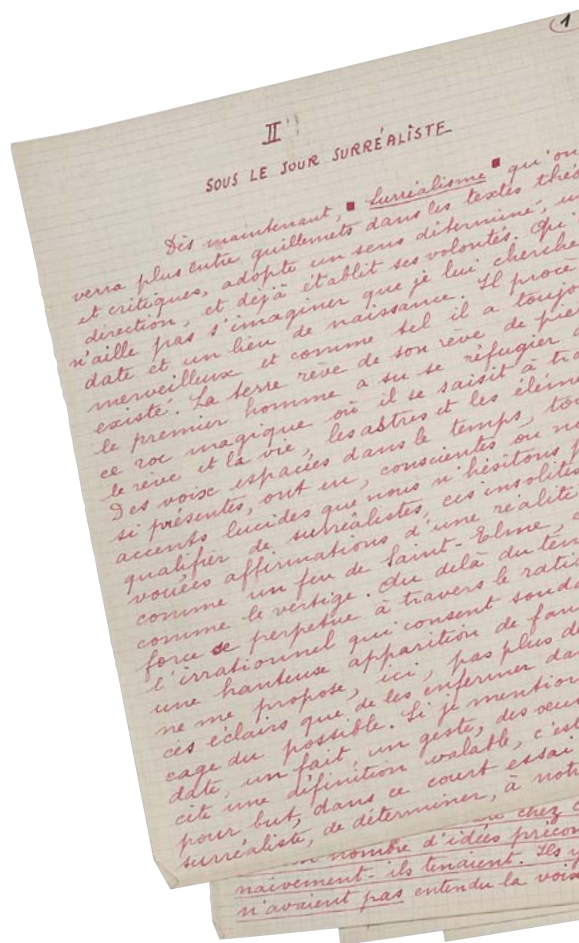 1
II
SOUS LE JOUR SURRÉALISTE
Dès maintenant, " Surréalisme " qu'on
verra plus entre guillemets dans les textes théo
et critiques, adopte un sens déterminé, u
direction, et déjà établit ses volontés. Qu'
n'aille pas s'imaginer que je lui cherche
date et un lieu de naissance. Il procè
merveilleux et comme tel il a toujo
existé. La terre rêve de son rêve de pie
le premier homme a su se réfugier
ce roc magique où il se saisit à tra
le rêve et la vie, les astres et les élém
Des voix espacées dans le temps, to
si présentes, ont eu, conscientes ou no
accents lucides que nous n'hésitons p
qualifier de surréalistes, ces insolite
vouées affirmations d'une réalité
comme un feu de Saint-Elme,
comme le vertige. Au delà du tem
force se perpétue à travers le rati
l'irrationnel qui consent soud
une hanteuse apparition de fan
ne me propose, ici, pas plus d
ces éclairs que de les enfermer da
cage du possible. Si je mention
date, un fait, un geste, des œuv
cite une définition valable, c'est
pour but, dans ce court essai
surréaliste, de déterminer, à not
chez
nombre d'idées précon
naïvement - ils tenaient. Ils y
n'avaient pas entendu la voix